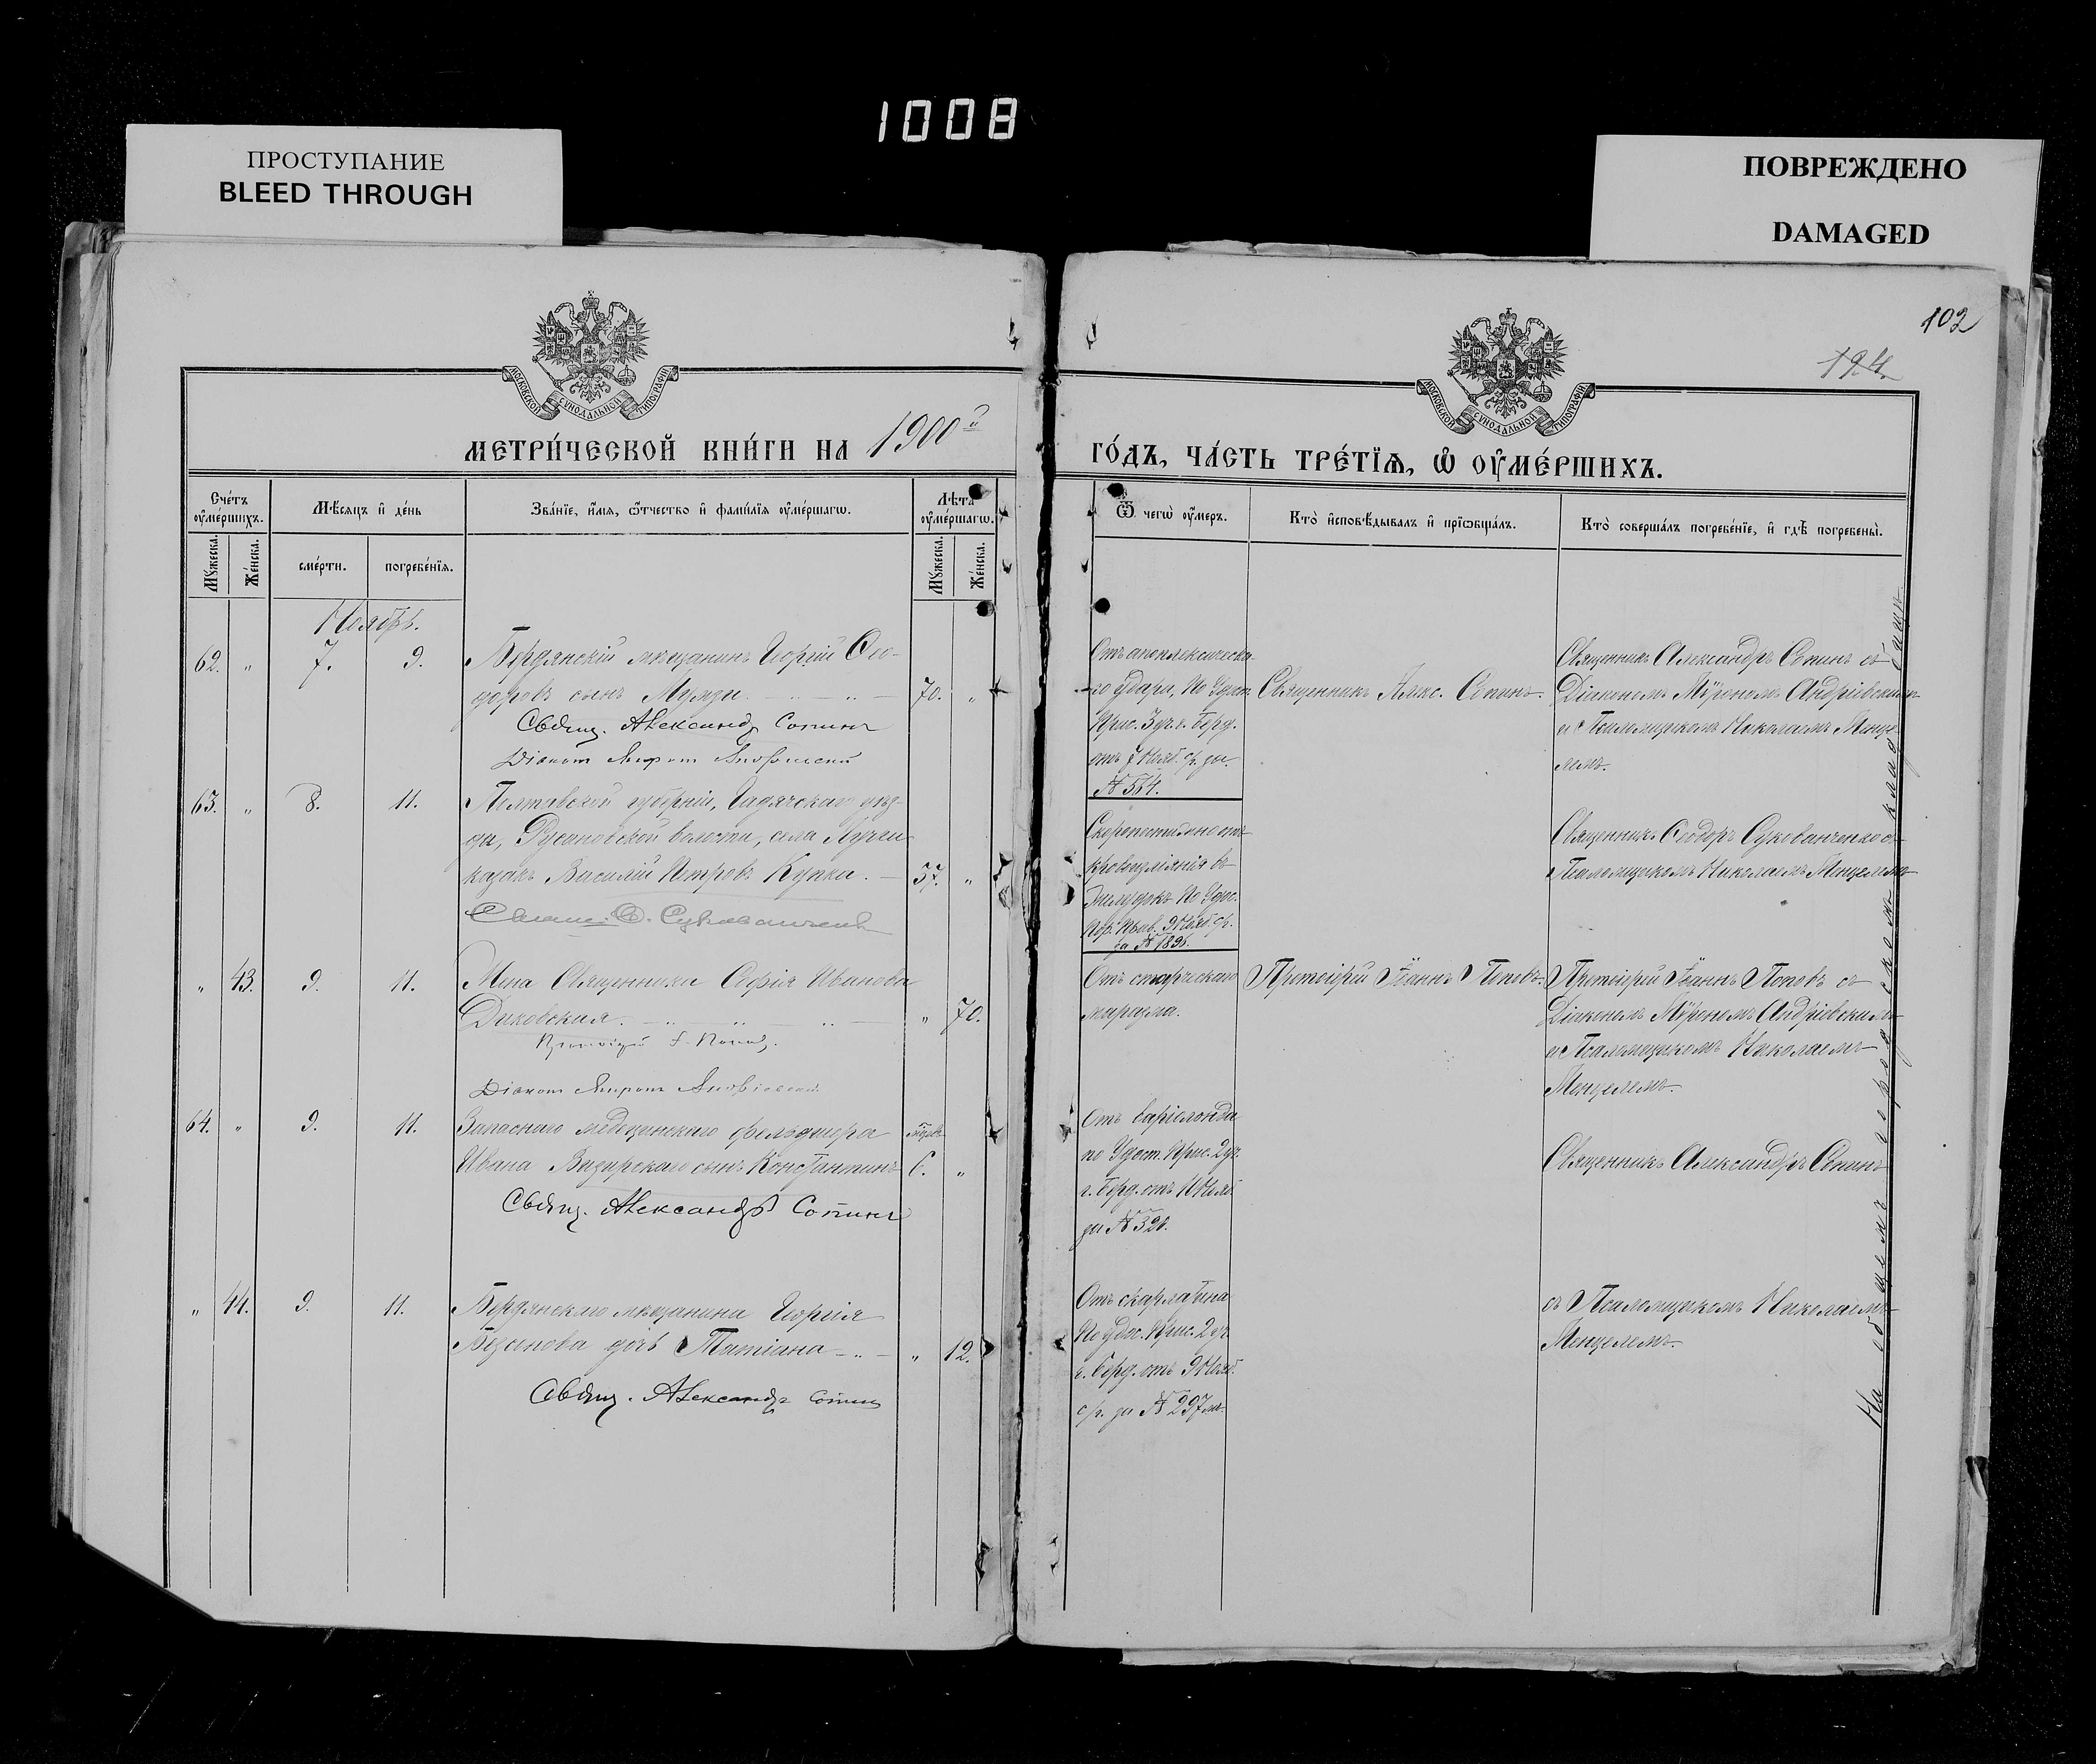 1008
ПРОСТУПАНИЕ
BLEED THROUGH
ПОВРЕЖДЕНО
DAMAGED
102
194.
МОСКОВСКОЙ СѴНОДАЛЬНОЙ ТИПОГРАФІИ
МОСКОВСКОЙ СѴНОДАЛЬНОЙ ТИПОГРАФІИ
МЕТРИ́ЧЕСКОЙ КНИ́ГИ НА 1900й
ГО́ДЪ, ЧА́СТЬ ТРЕ́ТЇѦ, Ѡ҆ ОУ҆МЕ́РШИХЪ.
Сче́тъ оу҆ме́ршихъ.
Мѣ́сяцъ и҆ де́нь
Зва́нїе, и҆́мя, ѻ҆́тчество и҆ фами́лїя оу҆ме́ршагѡ.
Лѣ́та оу҆ме́ршагѡ.
Мꙋ́жеска.
Же́нска.
сме́рти.
погребе́нїя.
Мꙋ́жеска.
Же́нска.
Ѿ чегѡ̀ оу҆́меръ.
Кто̀ и҆сповѣ́дывалъ и҆ прїѡбща́лъ.
Кто̀ соверша́лъ погребе́нїе, и҆ гдѣ̀ погребены̀.
Ноябрь.
62. „ 7. 9. Бердянскій мѣщанинъ Георгій Ѳео-
доровъ сынъ 70. „
Свящ. Александръ Сопинъ
Діаконъ Миронъ
Отъ апоплексическа-
го удара, по Удост.
Прис. 3 уч. г. Берд.
отъ 7 Нояб. с/г. за
№ 564.
Священникъ Алекс. Сопинъ.
Священникъ Александръ Сопинъ съ
Діакономъ Мѵрономъ Андріевскимъ
и Псаломщикомъ Николаемъ Менце-
лемъ.
63. „ 8. 11. Полтавской губерніи, Гадячскаго уѣз-
да, Русановской волости, села Лучки
казакъ Василій Петровъ Купка. 57. „
Свящ. Ѳ. Сукованченко
Скоропостижно отъ
кровоизліянія въ
желудокъ по Удос.
9 Нояб. с/г.
за № 1896.
Священникъ Ѳеодоръ Сукованченко съ
Псаломщикомъ Николаемъ Менцелемъ
„ 43. 9. 11. Жена Священника Софія Иванова
Диковская. „ 70.
Протоіерей І. Поповъ.
Діаконъ Миронъ Андріевскій
Отъ старческаго
маразма.
Протоіерей Іоаннъ Поповъ.
Протоіерей Іоаннъ Поповъ съ
Діакономъ Мѵрономъ Андріевскимъ
и Псаломщикомъ Николаемъ
Менцелемъ.
64. „ 9. 11. Запаснаго медецинскаго фельдшера
Ивана сынъ Константинъ 6. „
Свящ. Александръ Сопинъ
Отъ
по Удост. Прис. 2 уч.
г. Берд. отъ Нояб.
за № 320.
Священникъ Александръ Сопинъ
„ 44. 9. 11. Бердянскаго мѣщанина Георгія
дочь Татіана „ 12.
Свящ. Александръ Сопинъ
Отъ скарлатина
по удос. Прис. 2 уч.
г. Берд. отъ 9 Нояб.
с/г. за № 297мъ.
съ Псаломщикомъ Николаемъ
Менцелемъ.
На общемъ городскомъ кладбищѣ